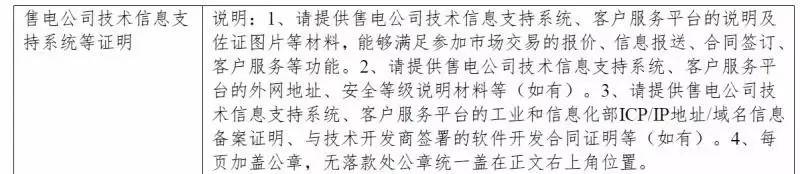 售电公司技术信息支
持系统等证明
说明：1、请提供售电公司技术信息支持系统、客户服务平台的说明及
佐证图片等材料，能够满足参加市场交易的报价、信息报送、合同签订、
客户服务等功能。2、请提供售电公司技术信息支持系统、客户服务平
台的外网地址、安全等级说明材料等（如有）。3、请提供售电公司技
术信息支持系统、客户服务平台的工业和信息化部ICP/IP地址/域名信息
备案证明、与技术开发商签署的软件开发合同证明等（如有）。4、每
页加盖公章，无落款处公章统一盖在正文右上角位置。